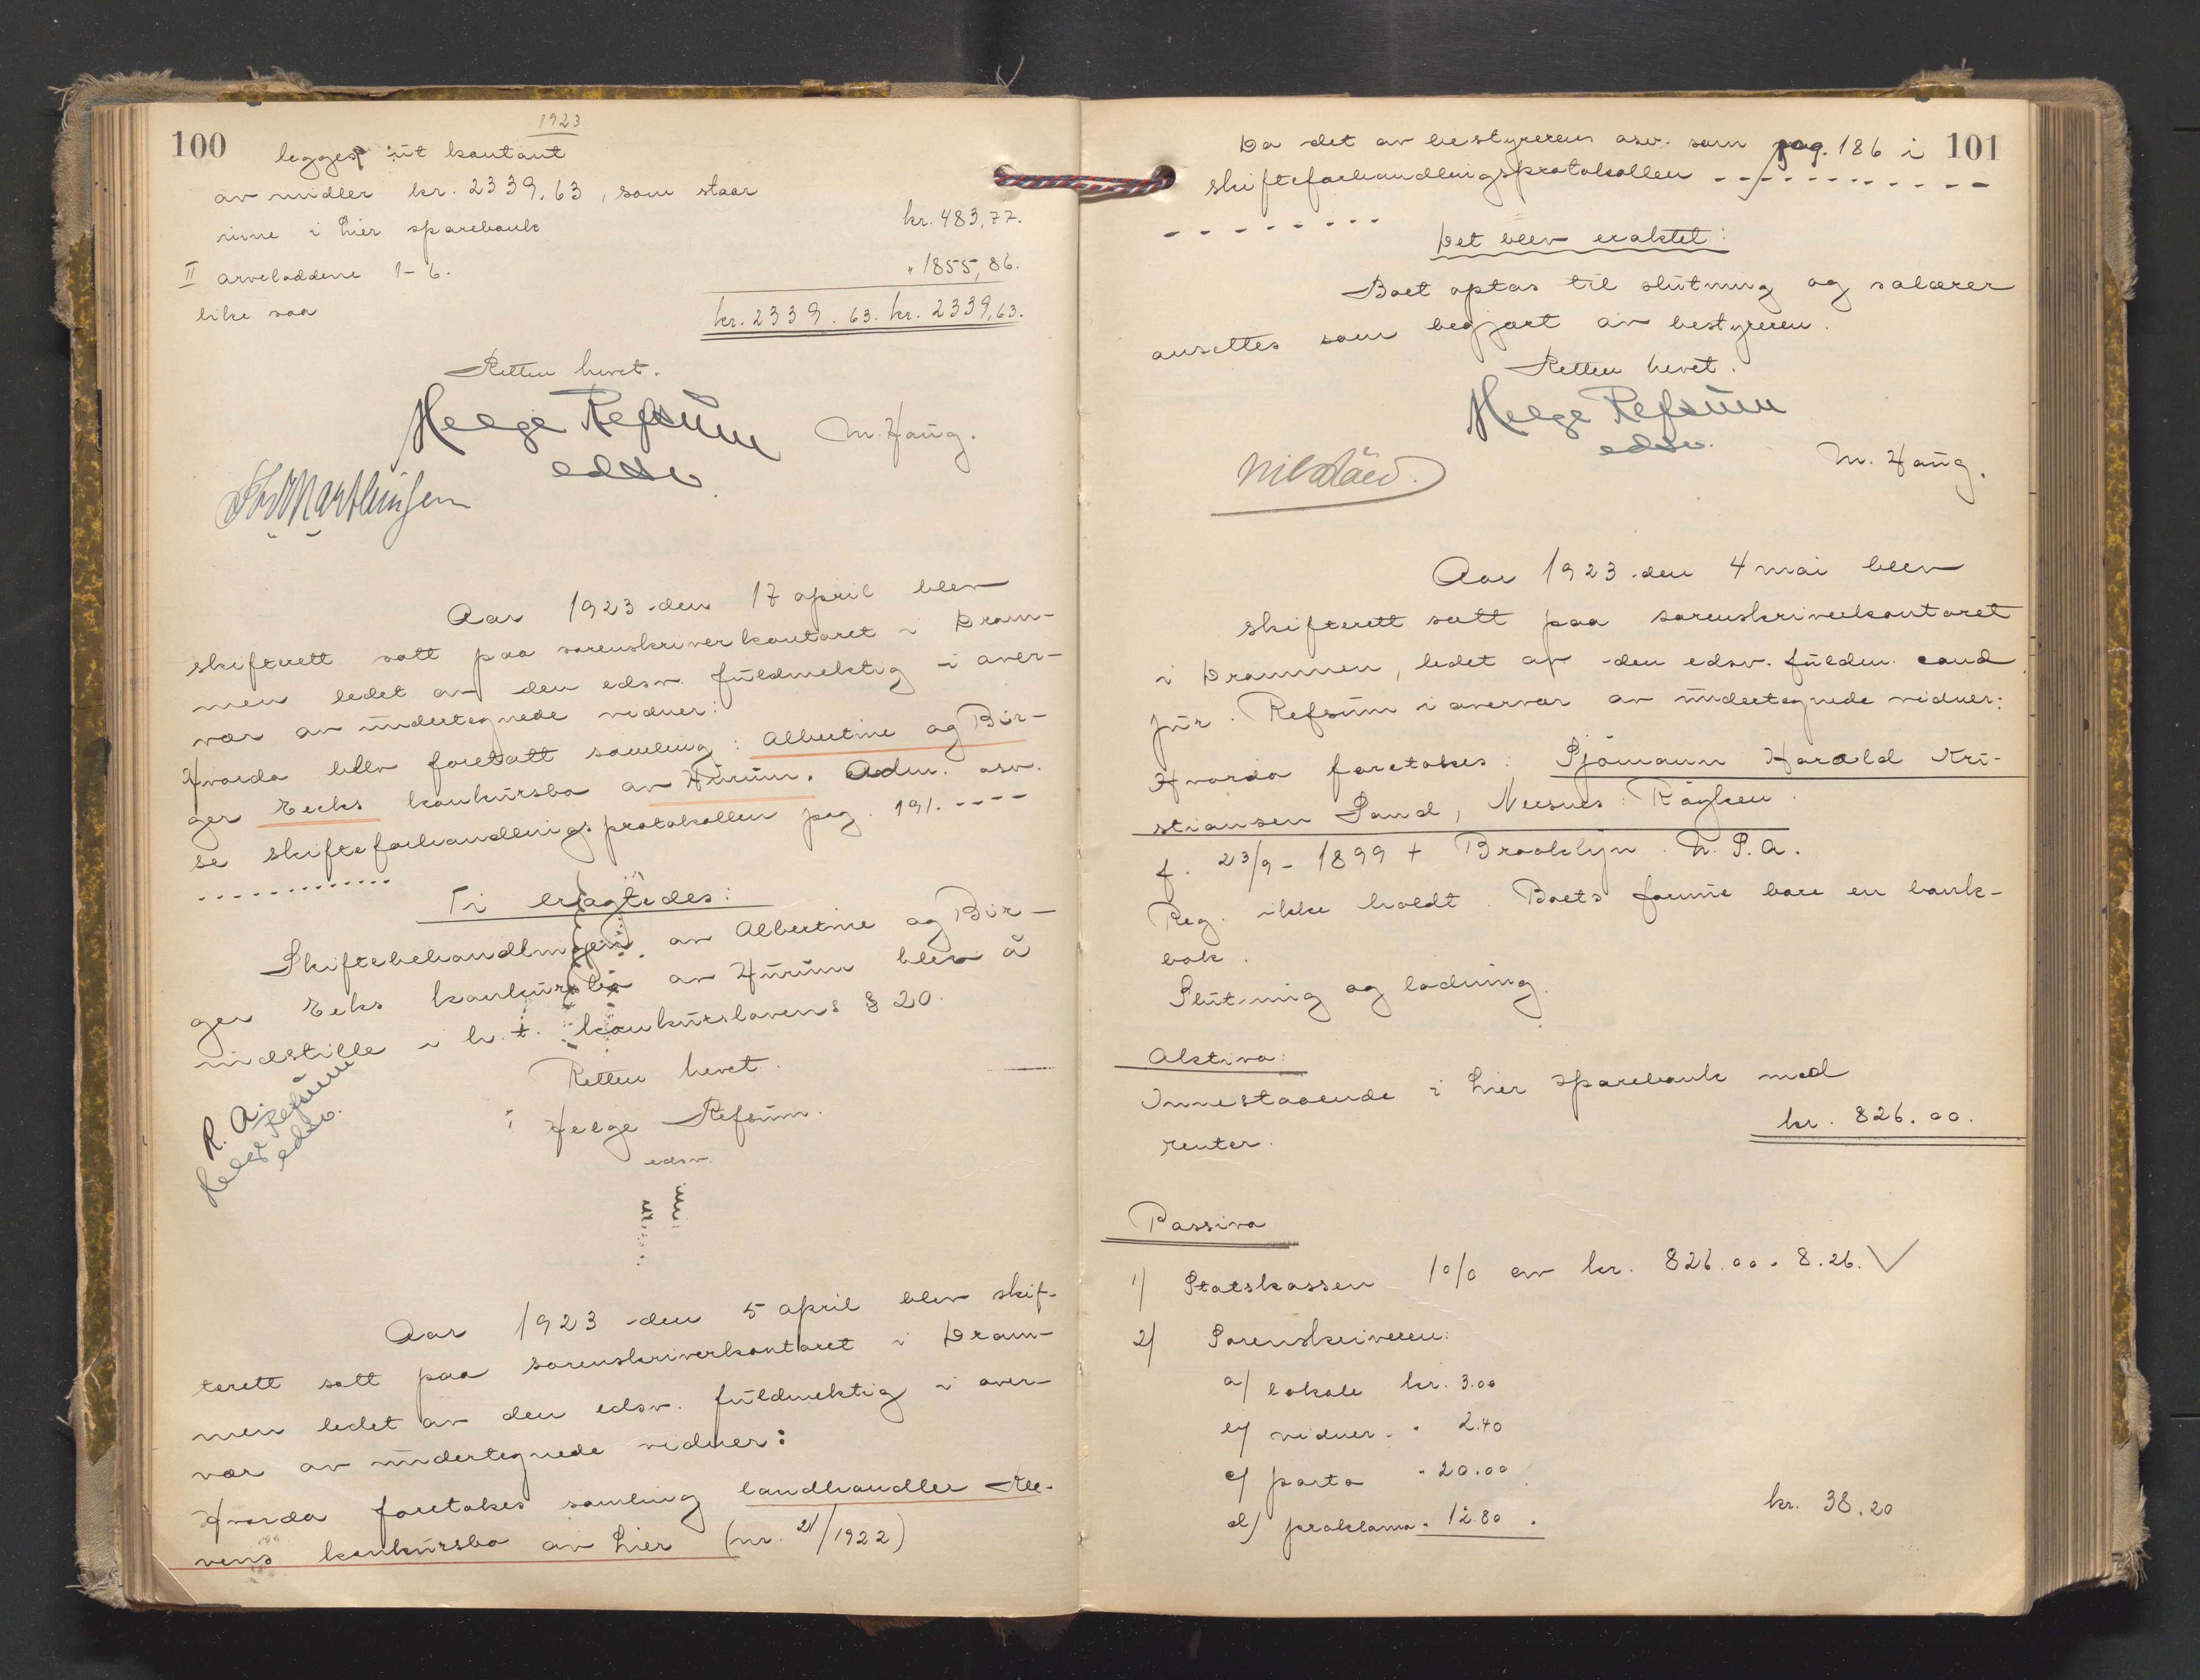 100
1923
legges ut kontant
av midler kr. 2339,63, som staar
inne i Lier sparebank kr. 483,77.
II arveloddene 1-6. " 1855,86.
like saa kr. 2339.63. kr. 2339,63.
Retten hevet.
Helge Refsum M. Haug.
edsv.
Aar 1923 den 17 april blev
skifterett satt paa sorenskriverkontoret i Dram-
men ledet av den edsv. fuldmektig i over-
vær av undertegnede vidner:
Hvorda blev foretatt samling: Albertine og Bir-
ger Eeks konkursbo av Hurum. Adm. osv.
se skifteforhandlingsprotokollen pag. 191. ----
-------------
Ti eragtedes:
Skiftebehandlingen av Albertine og Bir-
ger Eeks konkursbo av Hurum blev å
indstille i h.t. konkurslovens § 20.
Retten hevet.
Helge Refsum.
edsv.
R. A.
Helge Refsum
edsv.
Aar 1923 den 5 april blev skif-
terett satt paa sorenskriverkontoret i Dram-
men ledet av den edsv. fuldmektig i over-
vær av undertegnede vidner:
Hvorda foretokes samling landhandler
vens konkursbo av Lier (nr. 21/1922)
101
Da det av bestyreren osv. som pag. 186 i
skifteforhandlingsprotokollen -----------
--------
Det blev eraktet:
Boet optas til slutning og salærer
ansettes som begjært av bestyreren.
Retten hevet.
Helge Refsum
edsv.
M. Haug.
Aar 1923 den 4 mai blev
skifterett satt paa sorenskriverkontoret
i Drammen, ledet av den edsv. fuldm. cand.
jur. Refsum i overvær av undertegnede vidner:
Hvorda foretokes: Sjömann Harald Kri-
stiansen Sand, Nersnes: Röyken.
f. 23/9 - 1899 + Brooklyn. U. S. A.
Reg. ikke holdt. Boets formue bare en bank-
bok.
Slutning og lodning.
Aktiva:
Innestaaende i Lier sparebank med
renter. kr. 826.00.
Passiva
1) Statskassen 1% av kr. 826.00. 8.26. ✓
2) Sorenskriveren:
a) lokale kr. 3.00
b) vidner. " 2.40
c) porto " 20.00
d) proklama. " 12.80. kr. 38.20